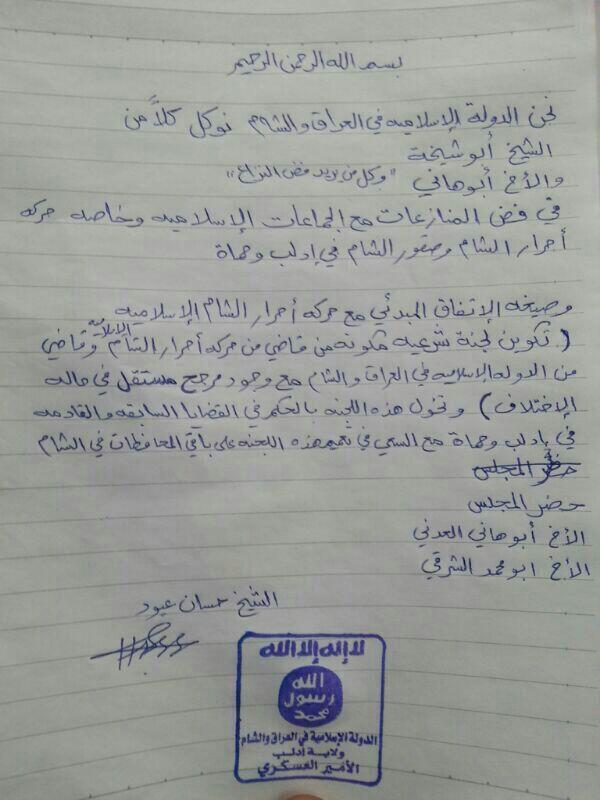 بسم الله الرحمن الرحيم
نحن الدولة الإسلاميه في العراق والشام نوكل كلاً من
الشيخ أبو شيخة
والأخ أبو هاني "وكل من يريد فض النزاع"
في فض المنازعات مع الجماعات الإسلاميه وخاصه حركه
أحرار الشام وصقور الشام في إدلب وحماة
وصيغه الإتفاق المبدئي مع حركه أحرار الشام الإسلاميه
( تكوين لجنة شرعيه مكونه من قاضي من حركه أحرار الشام الإسلاميه وقاضي
من الدوله الإسلاميه في العراق والشام مع وجود مرجح مستقل في حاله
الإختلاف ) وتخول هذه اللجنه بالحكم في القضايا السابقه والقادمه
في إدلب وحماة مع السعي في تعميم هذه اللجنه على باقي المحافظات في الشام
حضر المجلس
حضر المجلس
الأخ أبو هاني العدني
الأخ ابو محمد الشرقي
الشيخ حسان عبود
لا إله إلا الله
الله
رسول
محمد
الدولة الإسلامية في العراق والشام
ولاية إدلب
الأمير العسكري